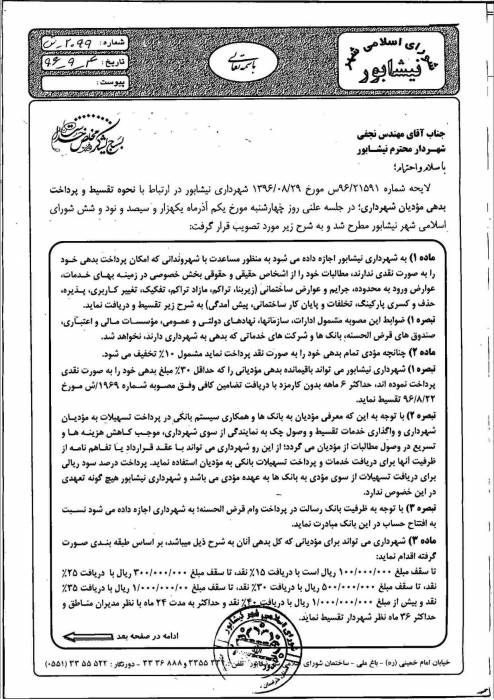 شورای اسلامی شهر
نیشابور
باسمه تعالی
شماره: ۲۰۹۹ـش
تاریخ: ۹۶ـ۹ـ۴
پیوست:
جناب آقای مهندس نجفی
شهردار محترم نیشابور
با سلام و احترام؛
لایحه شماره ۹۶/۲۱۵۹۱س مورخ ۱۳۹۶/۰۸/۲۹ شهرداری نیشابور در ارتباط با نحوه تقسیط و پرداخت
بدهی مؤدیان شهرداری؛ در جلسه علنی روز چهارشنبه مورخ یکم آذرماه یکهزار و سیصد و نود و شش شورای
اسلامی شهر نیشابور مطرح شد و به شرح زیر مورد تصویب قرار گرفت:
ماده ۱) به شهرداری نیشابور اجازه داده می شود به منظور مساعدت با شهروندانی که امکان پرداخت بدهی خود
را به صورت نقدی ندارند، مطالبات خود را از اشخاص حقیقی و حقوقی بخش خصوصی در زمینه بهای خدمات،
عوارض ورود به محدوده، جرایم و عوارض ساختمانی (زیربنا، تراکم، مازاد تراکم، تفکیک، تغییر کاربری، پذیره،
حذف و کسری پارکینگ، تخلفات و پایان کار ساختمانی، پیش آمدگی) به شرح زیر تقسیط و دریافت نماید.
تبصره ۱) ضوابط این مصوبه مشمول ادارات، سازمانها، نهادهای دولتی و عمومی، مؤسسات مالی و اعتباری،
صندوق های قرض الحسنه، بانک ها و شرکت های خدماتی که بدهی به شهرداری دارند، نخواهد شد.
ماده ۲) چنانچه مؤدی تمام بدهی خود را به صورت نقد پرداخت نماید مشمول ۱۰٪ تخفیف می شود.
تبصره ۱) شهرداری نیشابور می تواند باقیمانده بدهی مؤدیانی را که حداقل ۳۰٪ مبلغ بدهی خود را به صورت نقدی
پرداخت نموده اند، حداکثر ۶ ماهه بدون کارمزد با دریافت تضامین کافی وفق مصوبه شماره ۱۹۶۹/ش مورخ
۹۶/۸/۲۲ تقسیط نماید.
تبصره ۲) با توجه به این که معرفی مؤدیان به بانک ها و همکاری سیستم بانکی در پرداخت تسهیلات به مؤدیان
شهرداری و واگذاری خدمات تقسیط و وصول چک به نمایندگی از سوی شهرداری، موجب کاهش هزینه ها و
تسریع در وصول مطالبات از مؤدیان می گردد؛ از این رو شهرداری می تواند با عقد قرارداد یا تفاهم نامه از
ظرفیت آنها برای دریافت خدمات و پرداخت تسهیلات بانکی به مؤدیان استفاده نماید. پرداخت درصد سود ریالی
برای دریافت تسهیلات از سوی مؤدی به بانک ها به عهده مؤدی می باشد و شهرداری نیشابور هیچ گونه تعهدی
در این خصوص ندارد.
تبصره ۳) با توجه به ظرفیت بانک رسالت در پرداخت وام قرض الحسنه؛ به شهرداری اجازه داده می شود نسبت
به افتتاح حساب در این بانک مبادرت نماید.
ماده ۳) شهرداری می تواند برای مؤدیانی که کل بدهی آنان به شرح ذیل میباشد، بر اساس طبقه بندی صورت
گرفته اقدام نماید:
تا سقف مبلغ ۱۰۰/۰۰۰/۰۰۰ ریال است با دریافت ۱۵٪ نقد، تا سقف مبلغ ۳۰۰/۰۰۰/۰۰۰ ریال با دریافت ۲۵٪
نقد، تا سقف مبلغ ۵۰۰/۰۰۰/۰۰۰ ریال با دریافت ۳۰٪ نقد، تا سقف مبلغ ۱/۰۰۰/۰۰۰/۰۰۰ ریال با دریافت ۳۵٪
نقد و بیش از مبلغ ۱/۰۰۰/۰۰۰/۰۰۰ ریال با دریافت ۴۰٪ نقد و حداکثر به مدت ۲۴ ماه با نظر مدیران مناطق و
حداکثر ۳۶ ماه نظر شهردار تقسیط نماید.
ادامه در صفحه بعد
شورای اسلامی شهر نیشابور
خیابان امام خمینی (ره) - باغ ملی - ساختمان شورای تلفن: ۳۳۵۵ و ۸۸۸ ۳۶ ۳۳ - دورنگار: ۵۲۲ ۵۵ ۳۳ (۰۵۵۱)